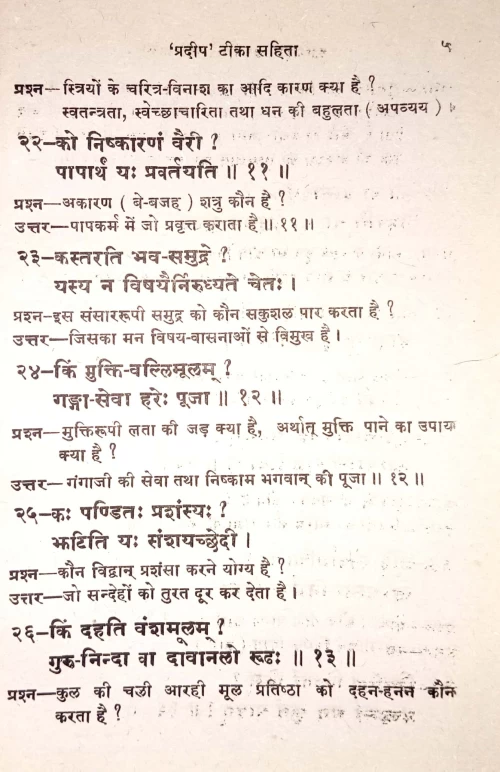 'प्रदीप' टीका सहिता ५
प्रश्न—स्त्रियों के चरित्र-विनाश का आदि कारण क्या है ?
स्वतन्त्रता, स्वेच्छाचारिता तथा धन की बहुलता ( अपव्यय )
२२—को निष्कारणं वैरी ?
पापार्थं यः प्रवर्तयति ॥ ११ ॥
प्रश्न—अकारण ( बे-बजह ) शत्रु कौन है ?
उत्तर—पापकर्म में जो प्रवृत्त कराता है ॥ ११ ॥
२३—कस्तरति भव-समुद्रे ?
यस्य न विषयैर्निरुध्यते चेतः ।
प्रश्न-इस संसाररूपी समुद्र को कौन सकुशल पार करता है ?
उत्तर—जिसका मन विषय-वासनाओं से विमुख है ।
२४—किं मुक्ति-वल्लिमूलम् ?
गङ्गा-सेवा हरेः पूजा ॥ १२ ॥
प्रश्न—मुक्तिरूपी लता की जड़ क्या है, अर्थात् मुक्ति पाने का उपाय
क्या है ?
उत्तर— गंगाजी की सेवा तथा निष्काम भगवान् की पूजा ॥ १२ ॥
२५—कः पण्डितः प्रशंस्यः ?
झटिति यः संशयच्छेदी ।
प्रश्न—कौन विद्वान् प्रशंसा करने योग्य है ?
उत्तर—जो सन्देहों को तुरत दूर कर देता है ।
२६—किं दहति वंशमूलम् ?
गुरु-निन्दा वा दावानलो रूढः ॥ १३ ॥
प्रश्न—कुल की चली आरही मूल प्रतिष्ठा को दहन-हनन कौन
करता है ?